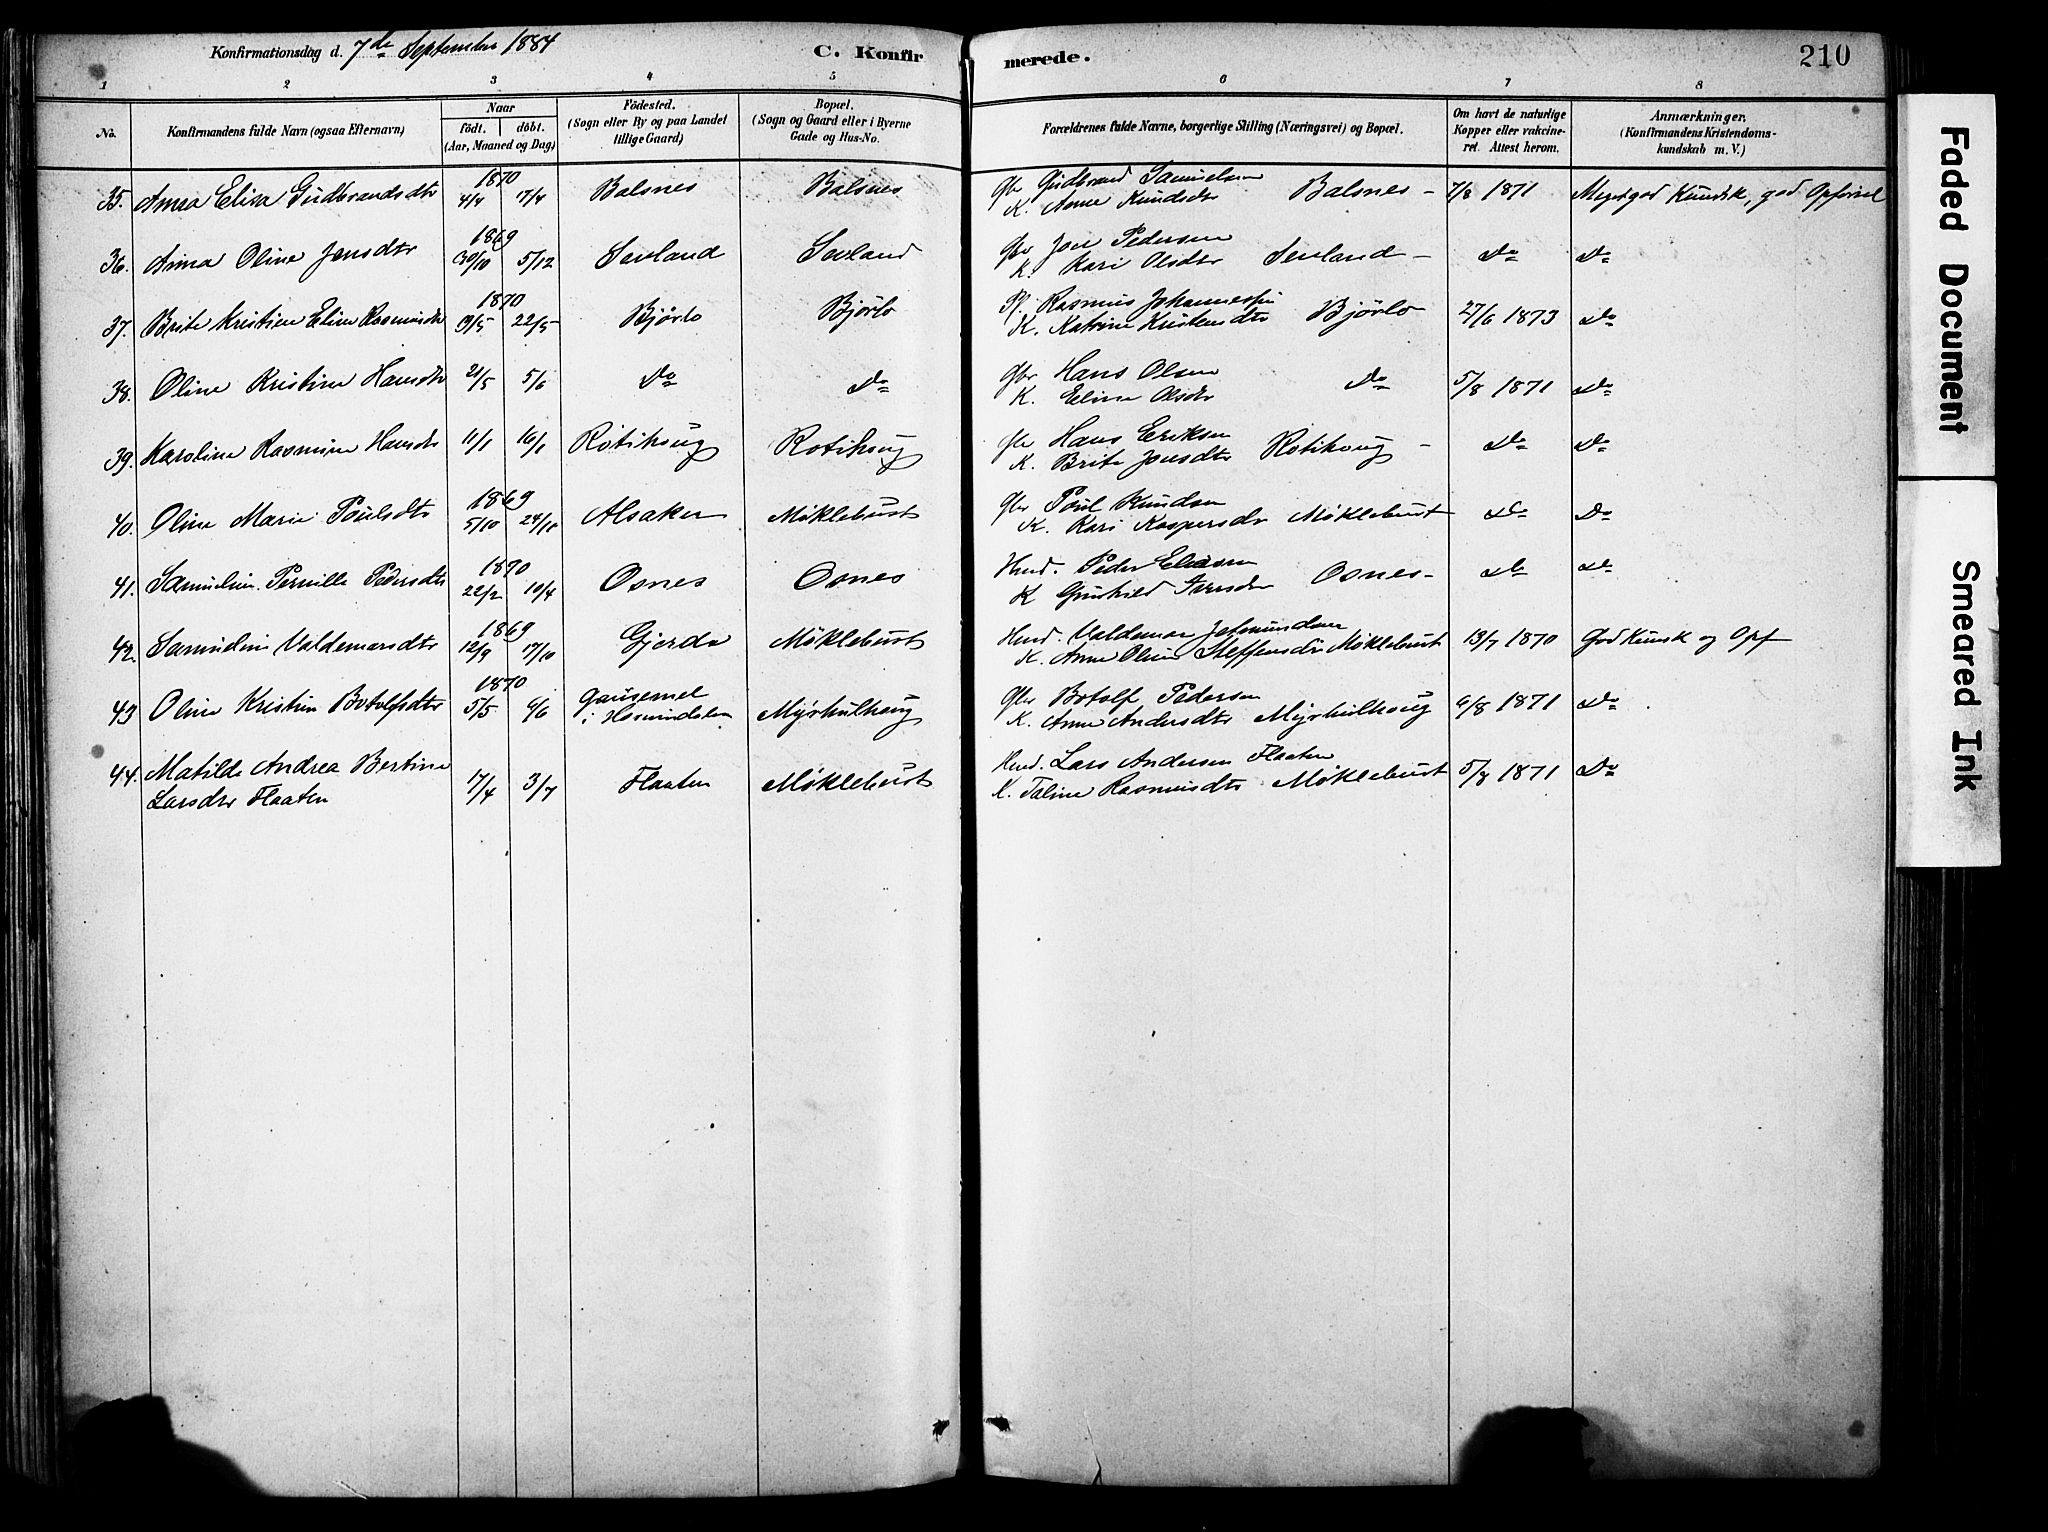 Konfirmationsdag d. 7de September 1884 C. Konfir merede. 210
1 2 3 4 5 6 7 8
No. Konfirmandens fulde Navn (ogsaa Efternavn) Naar födt. döbt. (Aar, Maaned og Dag) Födested. (Sogn eller By og paa Landet tillige Gaard) Bopæl. (Sogn og Gaard eller i Byerne Gade og Hus-No. Forældrenes fulde Navne, borgerlige Stilling (Næringsvei) og Bopæl. Om havt de naturlige Kopper eller vakcineret. Attest herom. Anmærkninger. (Konfirmandens Kristendomskundskab m. V.)
1870
35. Anna Elisa Gudbrandsdtr 4/4 17/4 Balsnes Balsnes Gbr Gudbrand Samuelsen
K. Anne Knudsdtr Balsnes - 7/8 1871 Meget god Kundsk, god Opførsel
1869
36. Anna Oline Jonsdtr 30/10 5/12 Sevland Sevland Gbr Jon Pedersen
K. Kari Olsdtr Sevland - Do Do
1870
37. Brite Kristine Eline Rasmusdtr 9/5 22/5 Bjørlo Bjørlo Pl. Rasmus Johannessen
K. Katrine Kristensdtr Bjørlo 27/6 1873 Do
38. Oline Kristine Hansdtr 21/5 5/6 Do Do Gbr Hans Olsen
K. Eline Olsdtr Do 5/8 1871 Do
39. Karoline Rasmine Hansdtr 11/1 16/1 Rotihoug Rotihoug Gbr Hans Eriksen
K. Brite Jonsdtr Rotihoug - Do Do
1869
40. Oline Marie Poulsdtr 5/10 24/10 Alsaker Møklebust Gbr Poul Knudsen
K. Kari Kaspersdr Møklebust Do Do
1870
41. Samueline Pernille Pedersdtr 22/2 10/4 Osnes Osnes Husd. Peder Eliasen
K Gunhild Iversdr Osnes - Do Do
1869
42. Samueline Valdemarsdtr 12/9 17/10 Gjerde Møklebust Husd. Valdemar Jetmundsen
K. Anne Oline Steffensdtr Møklebust 13/7 1870 God Kunsk og Opf
1870
43 Oline Kristine Botolfsdtr 5/5 6/6 Gausemel
i Hornindalen Myrhulhoug Gbr Botolf Pedersen
K. Anne Andersdtr Myrhulhoug 6/8 1871 Do
44. Matilde Andrea Bertine
Larsdtr Flaaten 17/4 3/7 Flaaten Møklebust Husd. Lars Andersen Flaaten
K. Taline Rasmusdtr Møklebust 5/8 1871 Do
Faded Document
Smeared Ink